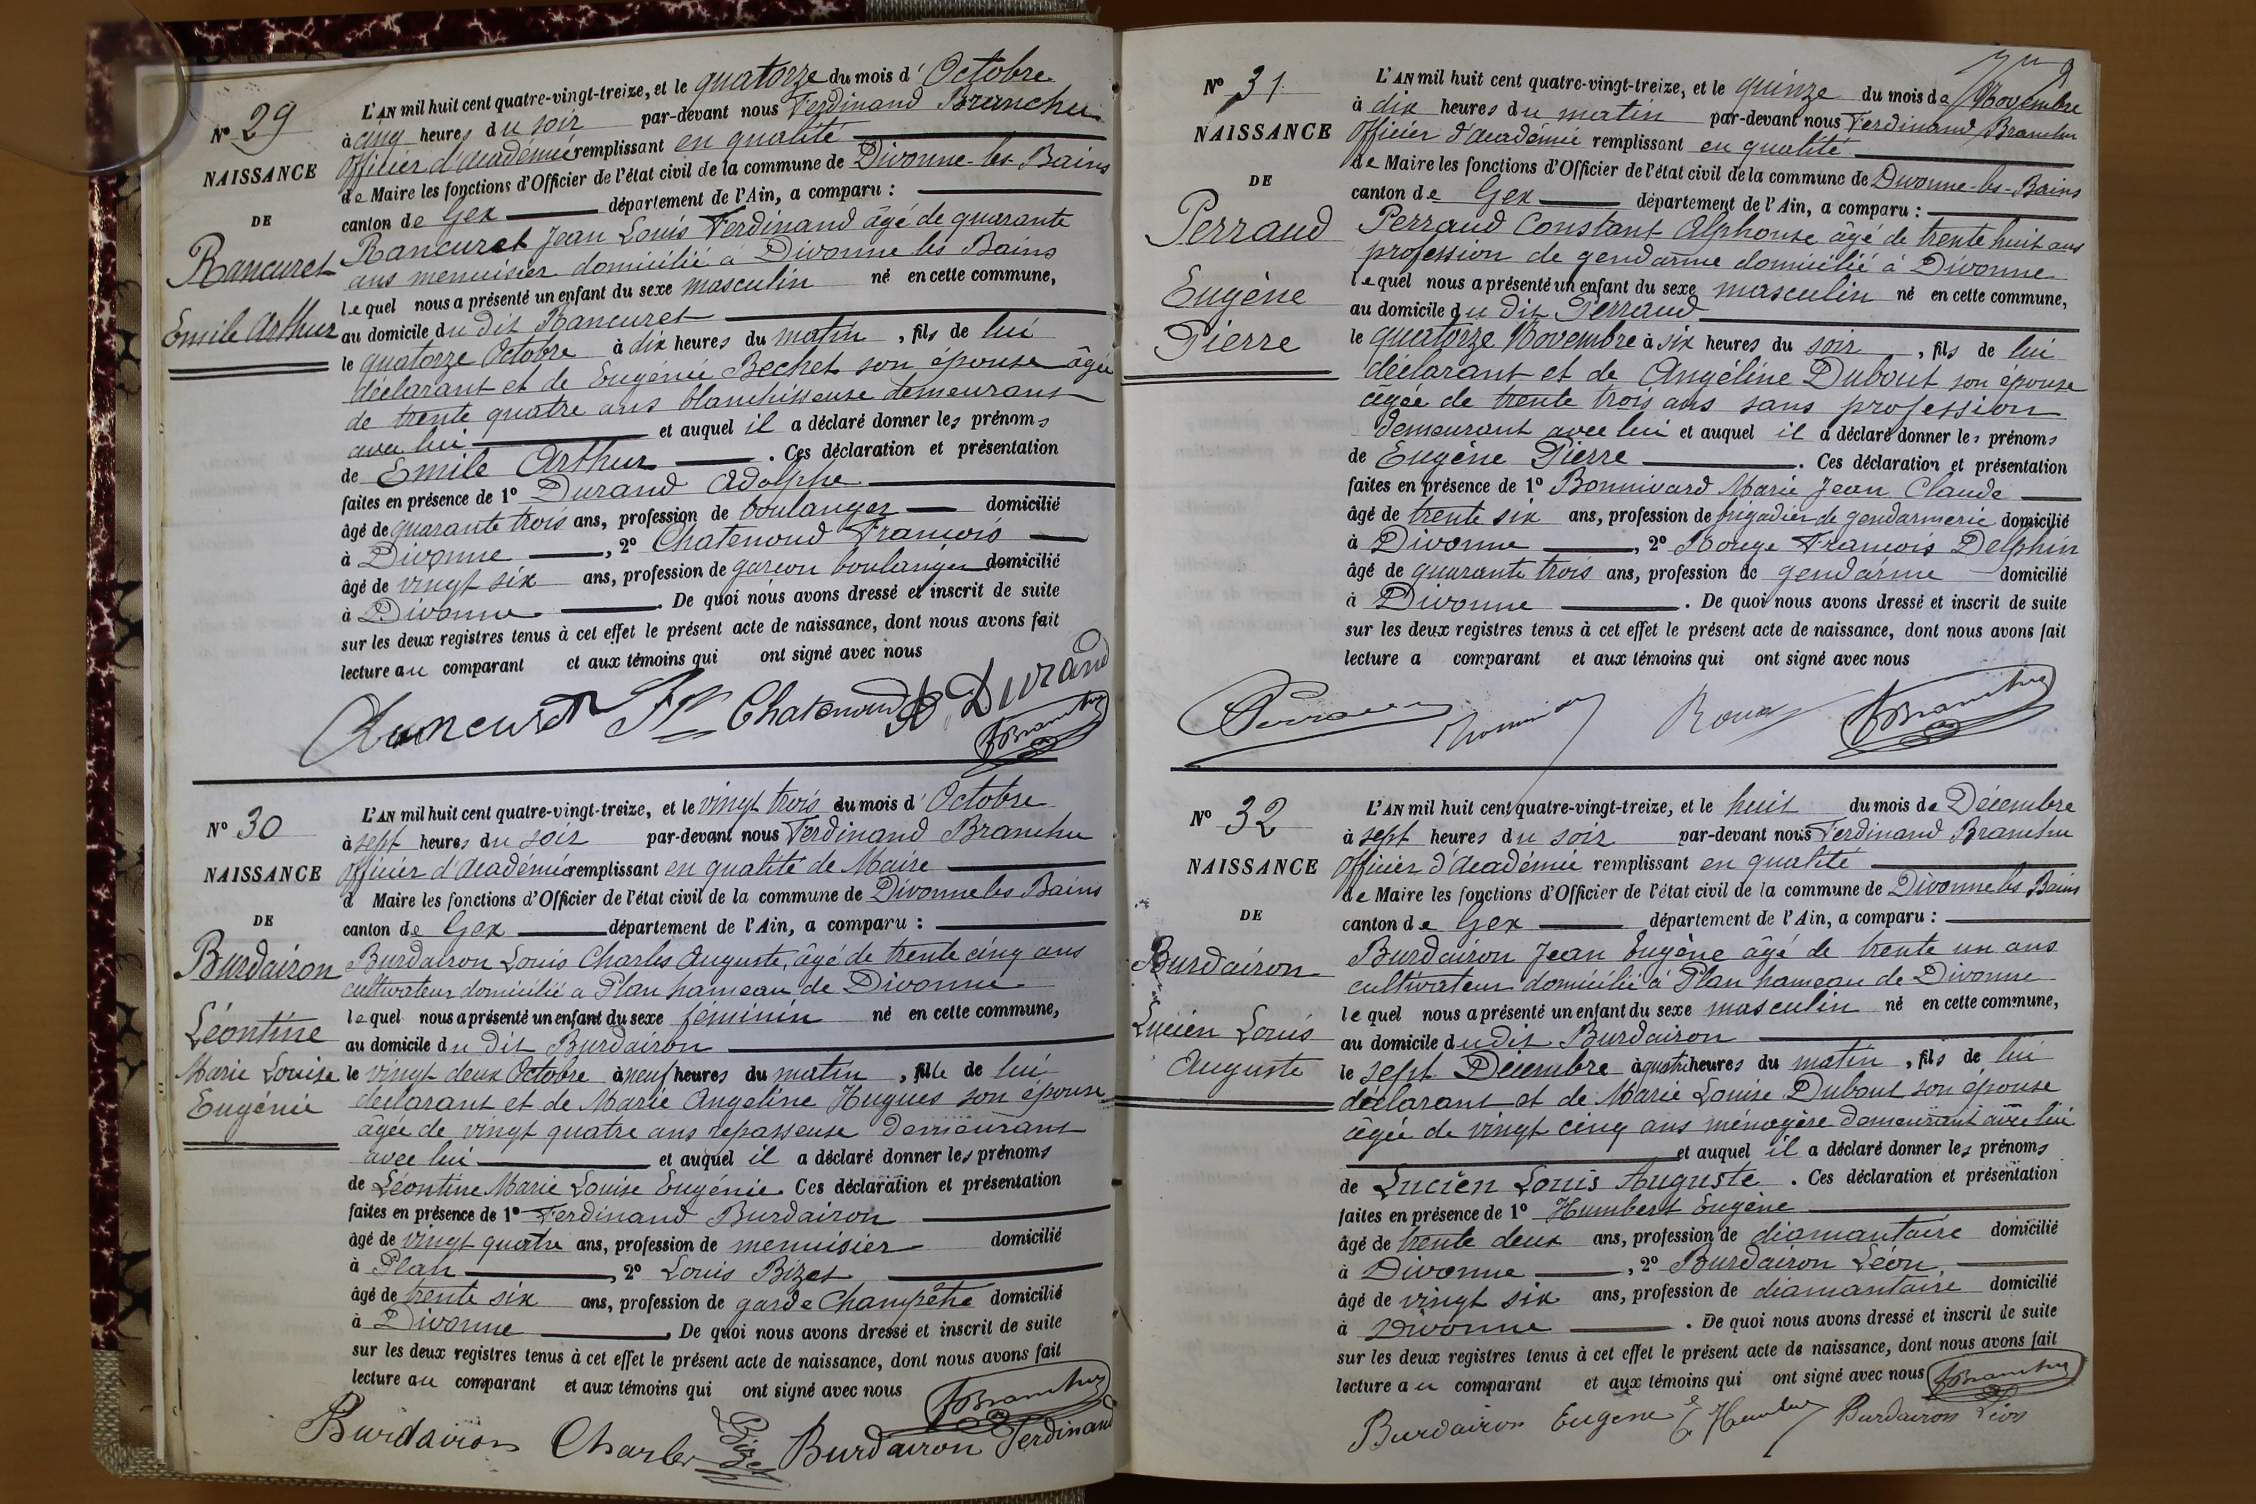 L'AN mil huit cent quatre-vingt-treize, et le quatorze du mois d'Octobre
Nº 29
à cinq heures du soir par-devant nous Ferdinand Branchu
Officier d'Académie remplissant en qualité
NAISSANCE
de Maire les fonctions d'Officier de l'état civil de la commune de Divonne-les-Bains
DE
canton de Gex département de l'Ain, a comparu :
Rancuret
Rancuret Jean Louis Ferdinand âgé de quarante
ans menuisier domicilié à Divonne les Bains
lequel nous a présenté un enfant du sexe masculin né en cette commune,
Emile Arthur
au domicile du dit Rancuret
le quatorze Octobre à dix heures du matin, fils de lui
déclarant et de Eugénie Bechet son épouse âgée
de trente quatre ans blanchisseuse demeurant
avec lui et auquel il a déclaré donner les prénoms
de Emile Arthur . Ces déclaration et présentation
faites en présence de 1º Durand Adolphe
âgé de quarante trois ans, profession de boulanger domicilié
à Divonne , 2º Chatenoud François
âgé de vingt six ans, profession de garçon boulanger domicilié
à Divonne . De quoi nous avons dressé et inscrit de suite
sur les deux registres tenus à cet effet le présent acte de naissance, dont nous avons fait
lecture au comparant et aux témoins qui ont signé avec nous
Rancuret Chatenoud Durand
FBranchu
L'AN mil huit cent quatre-vingt-treize, et le vingt trois du mois d'Octobre
Nº 30
à sept heures du soir par-devant nous Ferdinand Branchu
Officier d'Académie remplissant en qualité de Maire
NAISSANCE
d Maire les fonctions d'Officier de l'état civil de la commune de Divonne les Bains
DE
canton de Gex département de l'Ain, a comparu :
Burdairon
Burdairon Louis Charles Auguste, âgé de trente cinq ans
cultivateur domicilié a Plan hameau de Divonne
lequel nous a présenté un enfant du sexe feminin né en cette commune,
Léontine
au domicile du dit Burdairon
Marie Louise
le vingt deux Octobre à neuf heures du matin, fille de lui
Eugénie
déclarant et de Marie Angeline Hugues son épouse
âgée de vingt quatre ans repasseuse demeurant
avec lui et auquel il a déclaré donner les prénoms
de Léontine Marie Louise Eugénie. Ces déclaration et présentation
faites en présence de 1º Ferdinand Burdairon
âgé de vingt quatre ans, profession de menuisier domicilié
à Plan , 2º Louis Bizet
âgé de trente six ans, profession de garde Champêtre domicilié
à Divonne . De quoi nous avons dressé et inscrit de suite
sur les deux registres tenus à cet effet le présent acte de naissance, dont nous avons fait
lecture au comparant et aux témoins qui ont signé avec nous
FBranchu
Burdairon Charles Bizet Burdairon Ferdinand
L'AN mil huit cent quatre-vingt-treize, et le quinze du mois de Novembre
Nº 31
à dix heures du matin par-devant nous Ferdinand Branchu
NAISSANCE
Officier d'Académie remplissant en qualité
de Maire les fonctions d'Officier de l'état civil de la commune de Divonne-les-Bains
DE
canton de Gex département de l'Ain, a comparu :
Perraud
Perraud Constant Alphonse âgé de trente huit ans
profession de gendarme domicilié à Divonne
Eugène
lequel nous a présenté un enfant du sexe masculin né en cette commune,
au domicile du dit Perraud
Pierre
le quatorze Novembre à six heures du soir, fils de lui
déclarant et de Angéline Dubout son épouse
âgée de trente trois ans sans profession
demeurant avec lui et auquel il a déclaré donner les prénoms
de Eugène Pierre . Ces déclaration et présentation
faites en présence de 1º Bonnivard Marie Jean Claude
âgé de trente six ans, profession de brigadier de gendarmerie domicilié
à Divonne , 2º Rouge François Delphin
âgé de quarante trois ans, profession de gendarme domicilié
à Divonne . De quoi nous avons dressé et inscrit de suite
sur les deux registres tenus à cet effet le présent acte de naissance, dont nous avons fait
lecture a comparant et aux témoins qui ont signé avec nous
Perraud FBranchu
L'AN mil huit cent quatre-vingt-treize, et le huit du mois de Décembre
Nº 32
à sept heures du soir par-devant nous Ferdinand Branchu
NAISSANCE
Officier d'Académie remplissant en qualité
de Maire les fonctions d'Officier de l'état civil de la commune de Divonne les Bains
DE
canton de Gex département de l'Ain, a comparu :
Burdairon
Burdairon Jean Eugène âgé de trente un ans
cultivateur domicilié à Plan hameau de Divonne
lequel nous a présenté un enfant du sexe masculin né en cette commune,
Lucien Louis
au domicile du dit Burdairon
Auguste
le sept Décembre à quatre heures du matin, fils de lui
déclarant et de Marie Louise Dubout son épouse
âgée de vingt cinq ans ménagère demeurant avec lui
et auquel il a déclaré donner les prénoms
de Lucien Louis Auguste . Ces déclaration et présentation
faites en présence de 1º Humbert Eugène
âgé de trente deux ans, profession de diamantaire domicilié
à Divonne , 2º Burdairon Léon
âgé de vingt six ans, profession de diamantaire domicilié
à Divonne . De quoi nous avons dressé et inscrit de suite
sur les deux registres tenus à cet effet le présent acte de naissance, dont nous avons fait
lecture au comparant et aux témoins qui ont signé avec nous FBranchu
Burdairon Eugene E Humbert Burdairon Léon